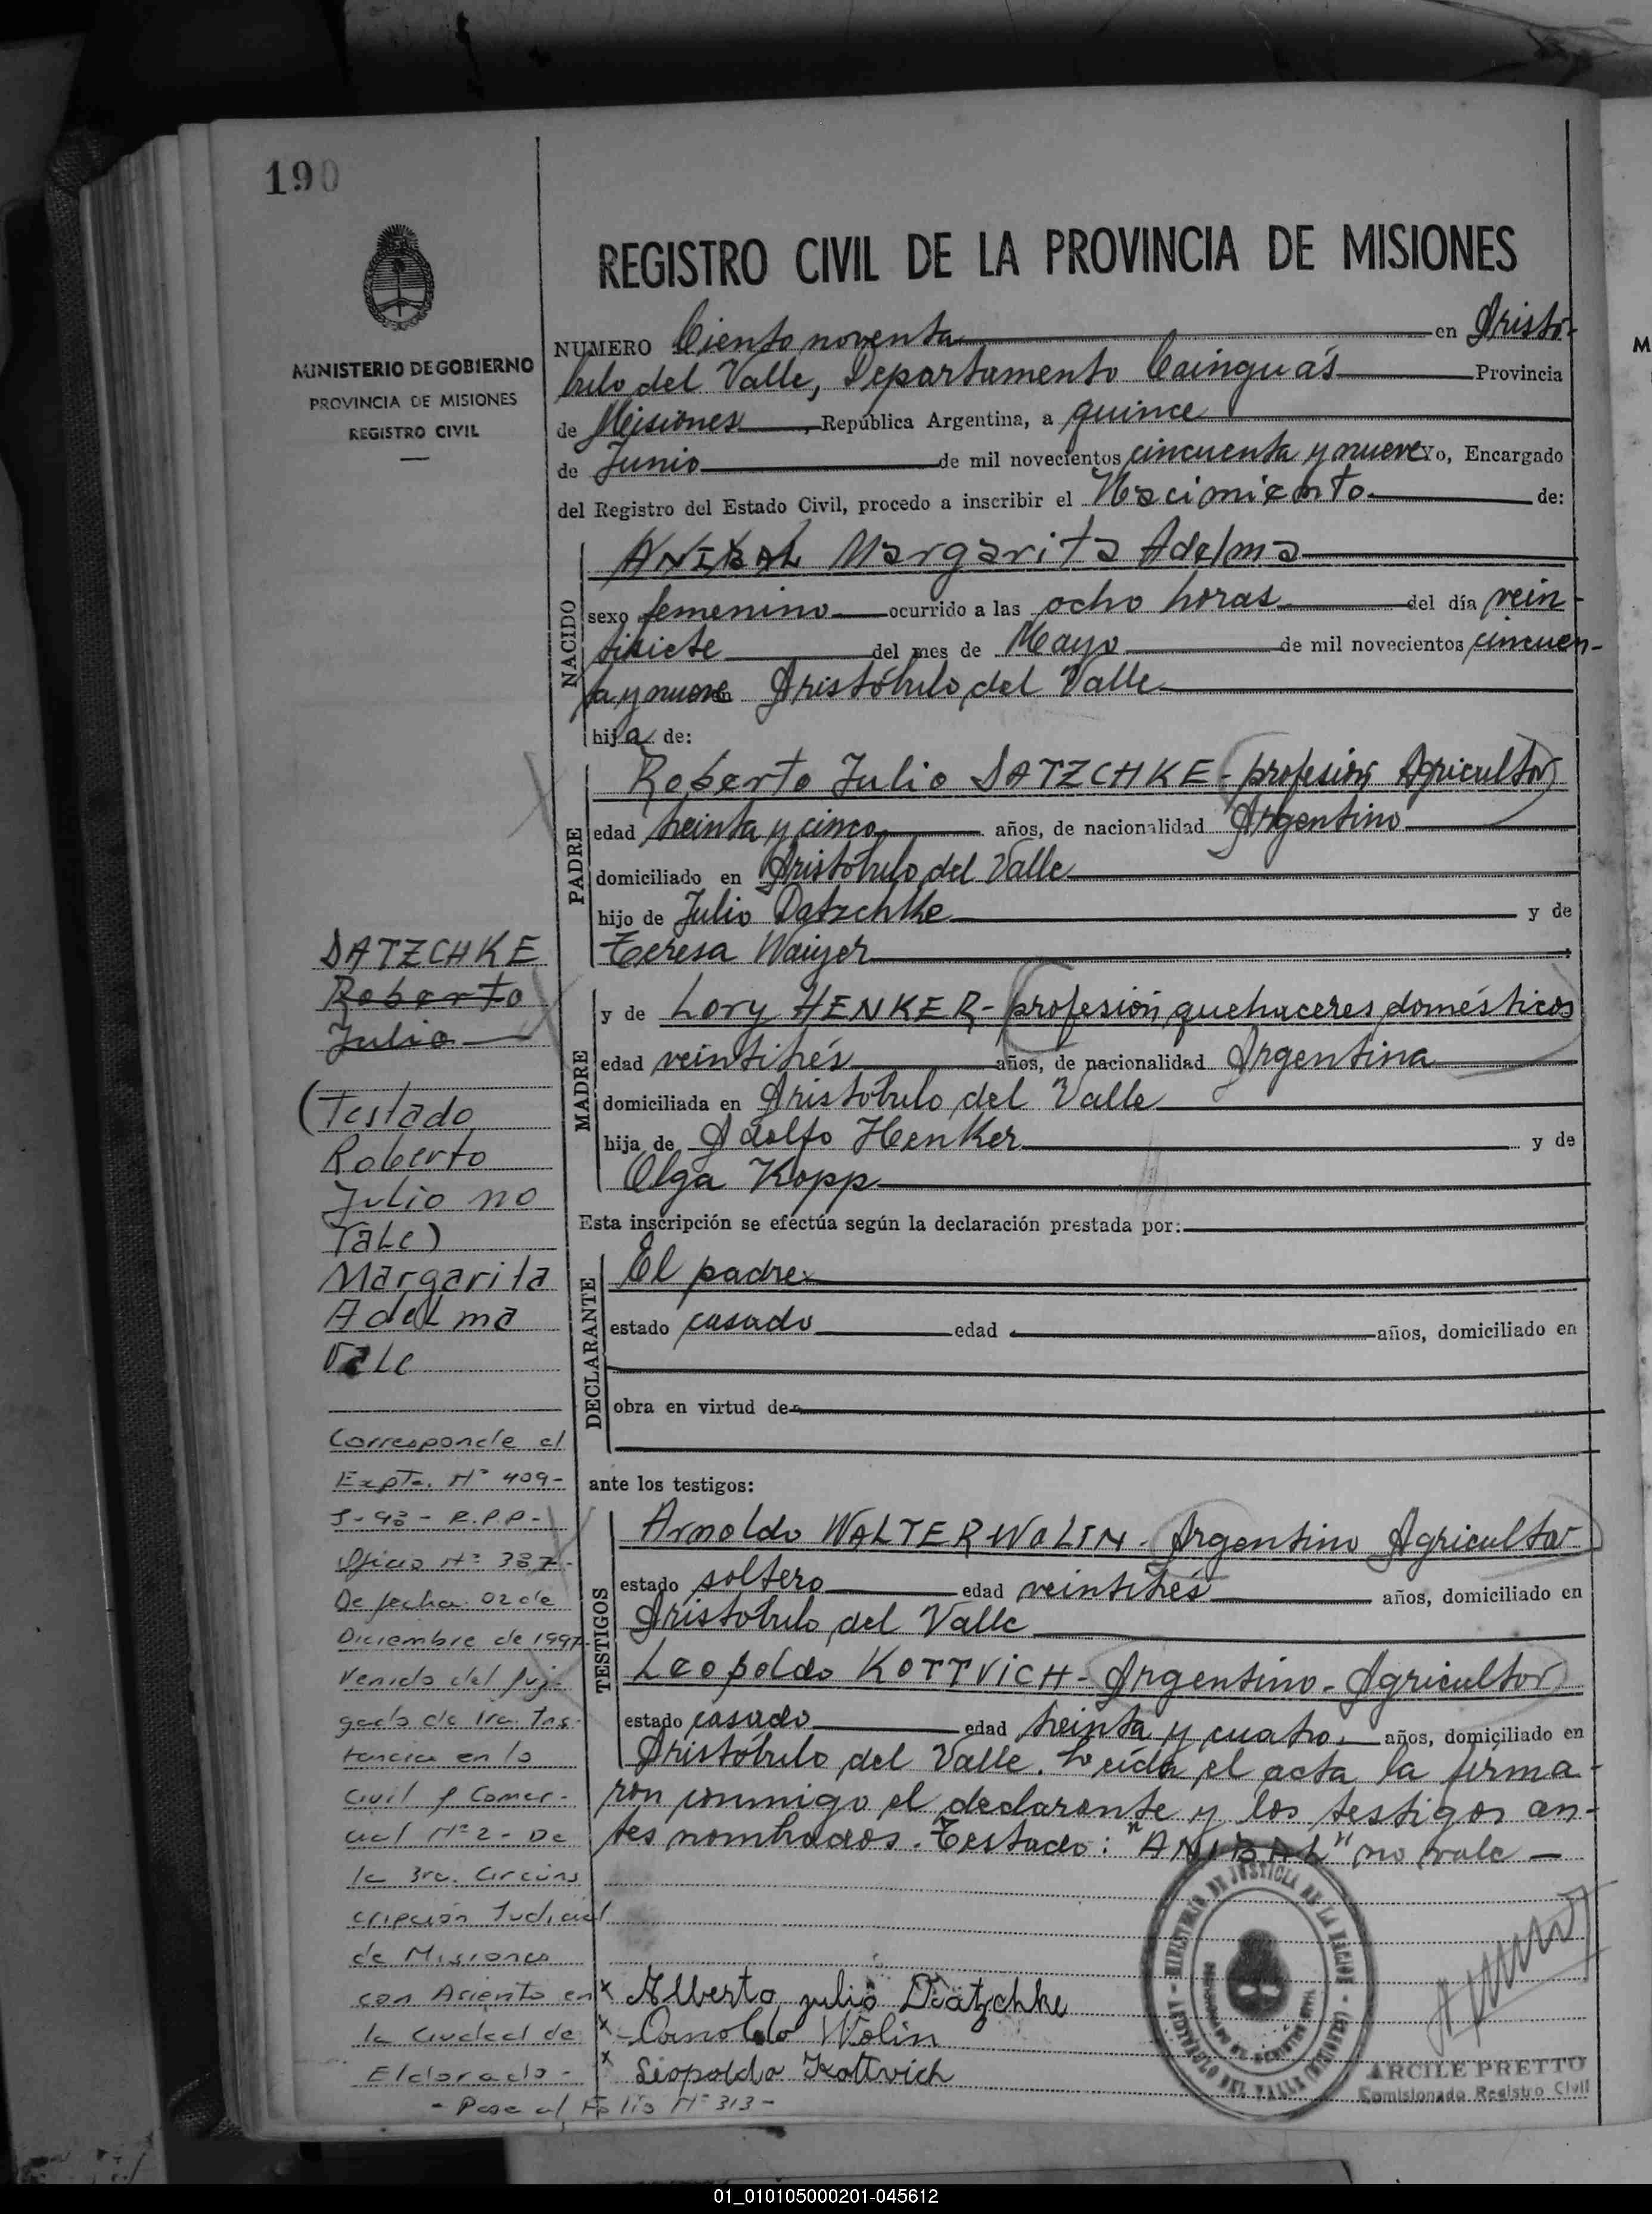 190
MINISTERIO DE GOBIERNO
PROVINCIA DE MISIONES
REGISTRO CIVIL
REGISTRO CIVIL DE LA PROVINCIA DE MISIONES
NUMERO Ciento noventa en Aristó-
bulo del Valle, Departamento Cainguás Provincia
de Misiones, República Argentina, a quince
de Junio de mil novecientos cincuenta y nueve Yo, Encargado
del Registro del Estado Civil, procedo a inscribir el Nacimiento de:
NACIDO
ANIBAL Margarita Adelma
sexo femenino ocurrido a las ocho horas del día vein-
tisiete del mes de Mayo de mil novecientos cincuen-
ta y nueve en Aristóbulo del Valle
hija de:
PADRE
Roberto Julio DATZCHKE - profesión Agricultor
edad treinta y cinco años, de nacionalidad Argentino
domiciliado en Aristóbulo del Valle
hijo de Julio Datzchke y de
Teresa Waiyer
MADRE
y de Lory HENKER - profesión quehaceres domésticos
edad veintitrés años, de nacionalidad Argentina
domiciliada en Aristóbulo del Valle
hija de Adolfo Henker y de
Olga Kopp
Esta inscripción se efectúa según la declaración prestada por:
DECLARANTE
El padre
estado casado edad años, domiciliado en
obra en virtud de
ante los testigos:
TESTIGOS
Arnoldo WALTER WOLIN - Argentino Agricultor
estado soltero edad veintitrés años, domiciliado en
Aristóbulo del Valle
Leopoldo KOTTVICH - Argentino - Agricultor
estado casado edad treinta y cuatro años, domiciliado en
Aristóbulo del Valle. Leída el acta la firma-
ron conmigo el declarante y los testigos an-
tes nombrados. Testado: "ANIBAL" no vale -
x Alberto julio Datzchke
x Arnoldo Wolin
x Leopoldo Kottvich
MINISTERIO DE JUSTICIA DE LA NACION
ARISTOBULO DEL VALLE (MISIONES)
ARCILE PRETTO
Comisionado Registro Civil
DATZCHKE
Roberto
Julio
(Testado
Roberto
Julio no
Vale)
Margarita
Adelma
Vale
Corresponde al
Expte. Nº 409-
S-93 - R.P.P.-
Oficio Nº 387-
De fecha 02 de
Diciembre de 1997-
Venido del Juz-
gado de 1ra. Ins-
tancia en lo
Civil y Comer-
cial Nº 2 - De
la 3ra. Circuns
cripción Judicial
de Misiones
con Asiento en
la Ciudad de
Eldorado -
- Pase al Folio Nº 313 -
01_010105000201-045612